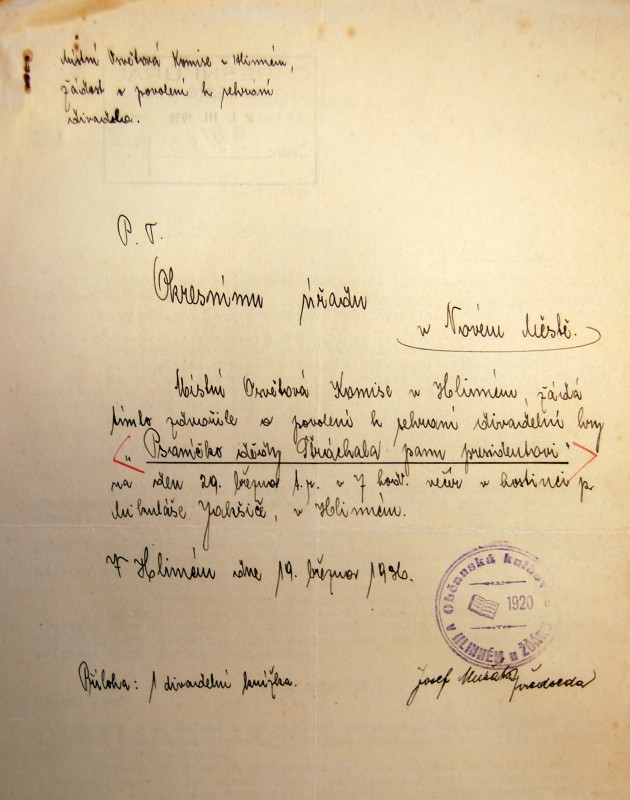 Místní Osvětová Komise v Hlinném,
žádost o povolení k sehrání
divadla.
2 1. III. 1936
P. T.
Okresnímu úřadu
v Novém Městě.
Místní Osvětová Komise v Hlinném, žádá
tímto zdvořile o povolení k sehrání divadelní hry
„Psaníčko dědy Práchala panu presidentovi"
na den 29. března t. r. v 7 hod. večer v hostinci p.
Mikuláše Jakšiče, v Hlinném.
V Hlinném dne 19. března 1936.
Občanská knihovna
1920
v HLINNÉM u
Příloha: 1 divadelní knížka.
Josef předseda